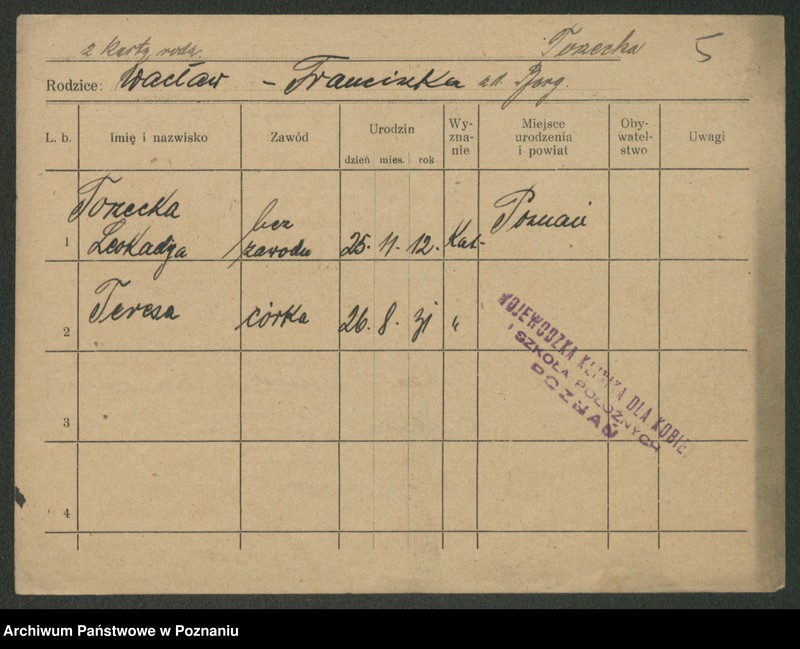 z karty rodz. Torzecka 5
Rodzice: Wacław - Franciszka ur. Berg.
L. b. Imię i nazwisko Zawód Urodzin Wy-zna-nie Miejsce urodzenia i powiat Oby-watel-stwo Uwagi
dzień mies. rok
Torzecka
bez
1 Leokadja zawodu 25. 11. 12. Kat- Poznań
2 Teresa córka 26. 8. 31 "
WOJEWÓDZKA KLINIKA DLA KOBIET
I SZKOŁA POŁOŻNYCH
POZNAŃ
3
4
Archiwum Państwowe w Poznaniu